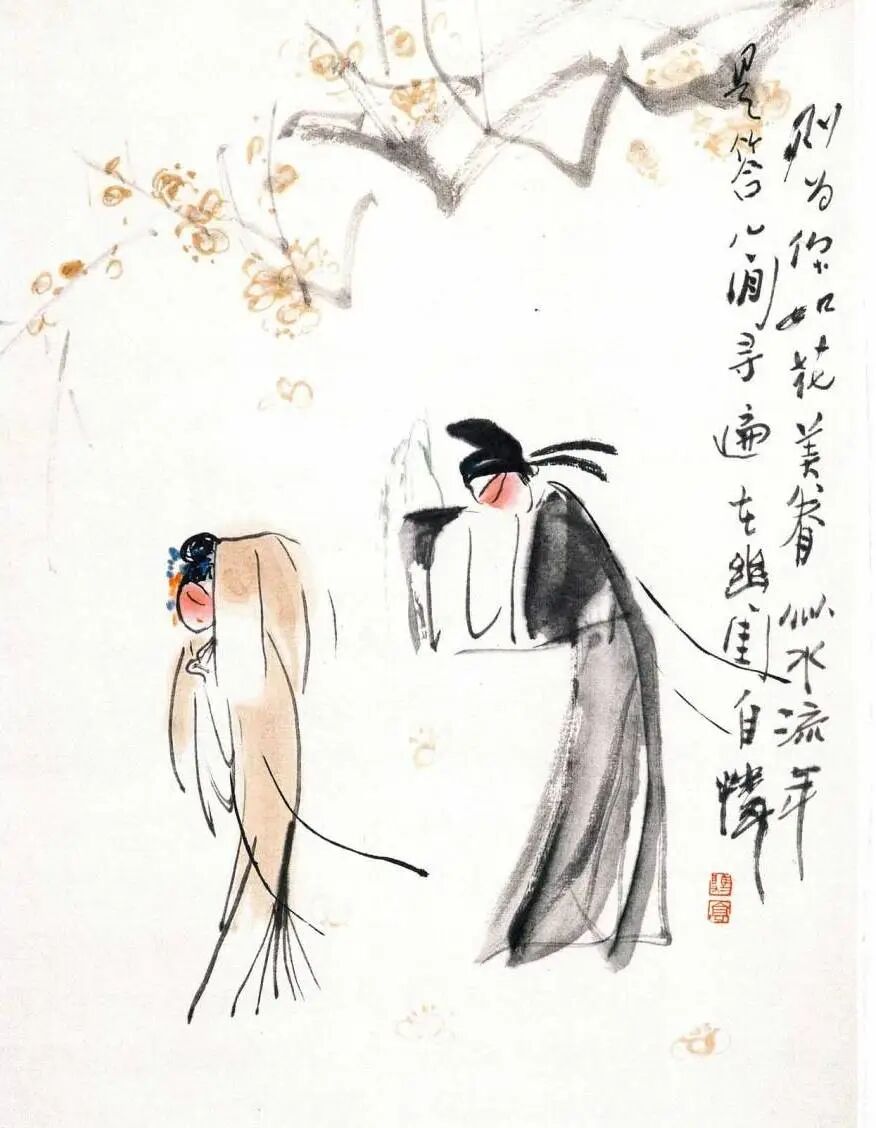 则为你如花美眷似水流年
是答儿闲寻遍在幽闺自憐